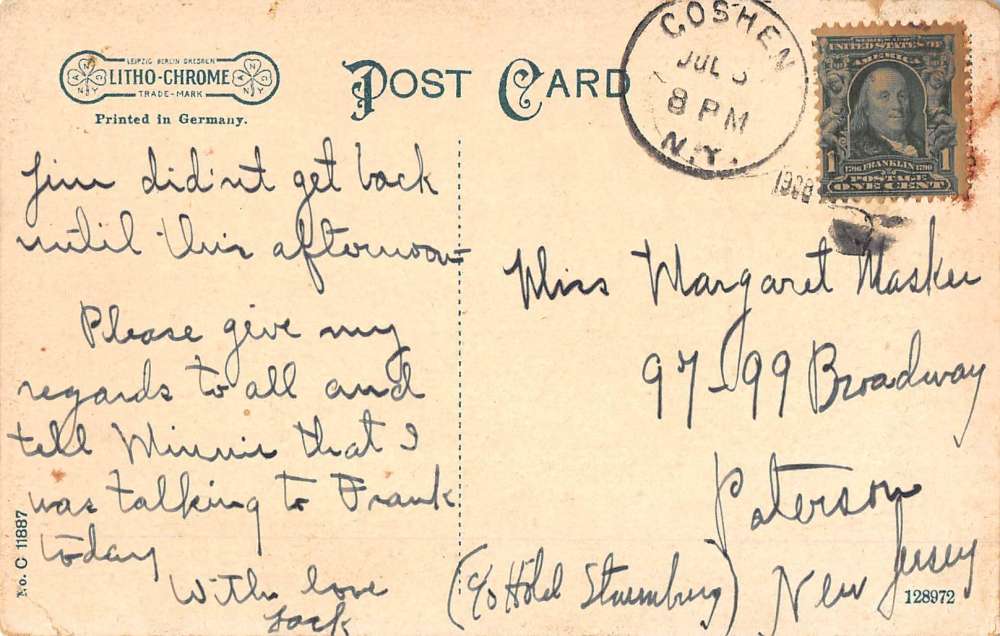 LEIPZIG BERLIN DRESDEN
LITHO-CHROME
TRADE-MARK
Printed in Germany.
POST CARD
GOSHEN
JUL
8 PM
N.Y.
SERIES 1902
UNITED STATES OF
AMERICA
1 1706 FRANKLIN 1790 1
POSTAGE
ONE CENT
Jim did'nt get back
until this afternoon
Please give my
regards to all and
tell Minnie that I
was talking to Frank
today
With love
Jack
Miss Margaret Masker
97-99 Broadway
Paterson
New Jersey
(c/o Hotel
No. C 11887
128972